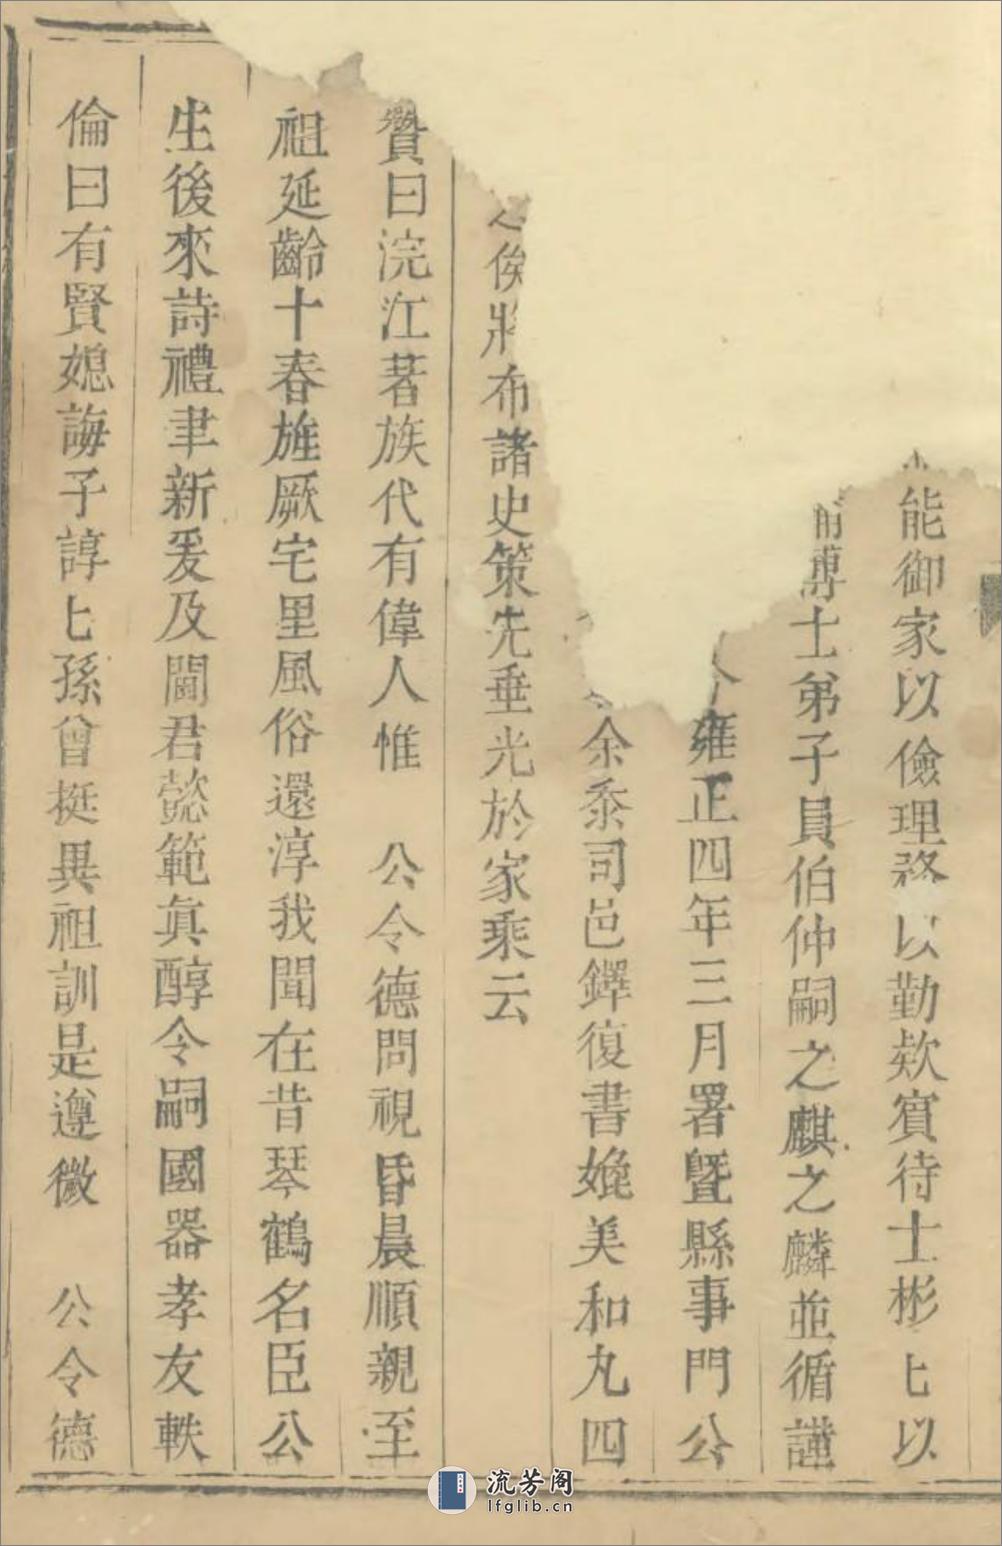 能御家以儉理務以勤欵賓待士彬匕以
博士弟子員伯仲嗣之麒之麟並循謹
雍正四年三月署暨縣事門公
余忝司邑鐸復書媺美和丸四
俟將布諸史策先垂光於家乘云
贊曰浣江著族代有偉人惟 公令德問視昏晨順親至
祖延齡十春旌厥宅里風俗還淳我聞在昔琴鶴名臣公
生後來詩禮聿新爰及閫君懿範眞醇令嗣國器孝友軼
倫曰有賢媳誨子諄匕孫曾挺異祖訓是遵徽 公令德
流芳阁
lfglib.cn